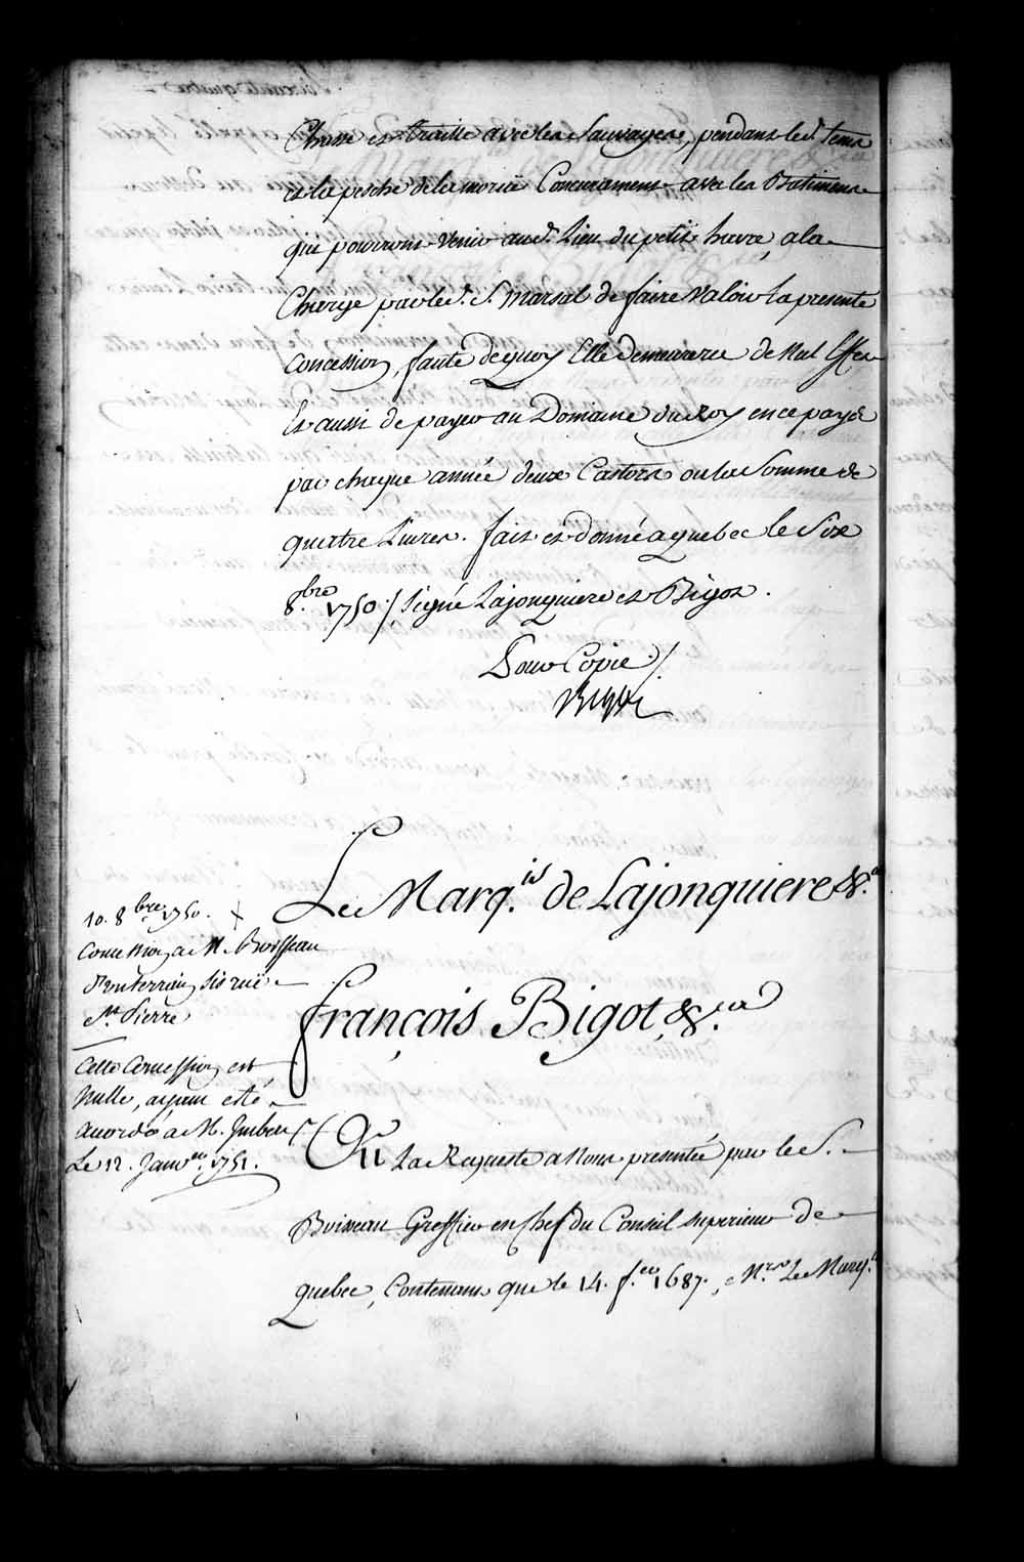 Chasse et traitte avec les Sauvages, pendant led. tems
et la pesche de la moruë Concurament avec les Batimens
qui pourront venir aud. Lieu du petit havre, a la
Charge par led. S. Marsal de faire valoir la presente
Concession, faute de quoy Elle demeurera de Nul Effet
Et aussi de payer au Domaine du Roy en ce payis
par chaque année deux Castors ou la Somme de
quatre Livres. fait et donné a quebec le Six
8.bre 1750 ./. Signé Lajonquiere et Bigot.
Pour Copie ./.
Bigot
Le Marq.is de Lajonquiere &.a
françois Bigot, &.ca
10. 8.bre 1750.
Concession a M. Boisseau
d'un terrein sis ruë
St. Pierre
Cette Concession est
Nulle, ayant esté
accordé a M. Imbert
Le 12. Janv.er 1751.
Vu La Requeste a Nous presentée par le S.
Boisseau Greffier en Chef du Conseil superieur de
quebec, Contenant que le 14. f.er 1687., M.rs Le Marq.is